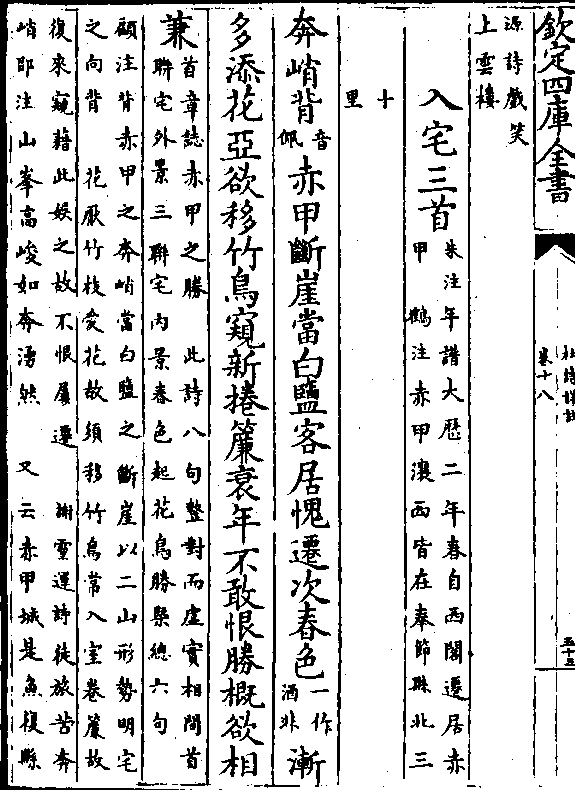 欽定四庫全書
杜詩詳註
卷十八
五十五
源詩戲笑
上雲樓
入宅三首
朱注年譜大歷二年春自西閣遷居赤
甲 鶴注赤甲瀼西皆在奉節縣北三
十
里
奔峭背音佩赤甲斷崖當白鹽客居愧遷次春色一作酒非漸
多添花亞欲移竹鳥窺新捲簾衰年不敢恨勝概欲相
兼首章誌赤甲之勝 此詩八句整對而虛實相間首
聯宅外景三聯宅內景春色起花鳥勝槩總六句
顧注背赤甲之奔峭當白鹽之斷崖以二山形勢明宅
之向背 花厭竹枝妾花故須移竹鳥常入室卷簾故
復來窺藉此娛之故不恨屢遷 謝靈運詩徒旅苦奔
峭即注山峯高峻如奔湧然 又云赤甲城是魚復縣